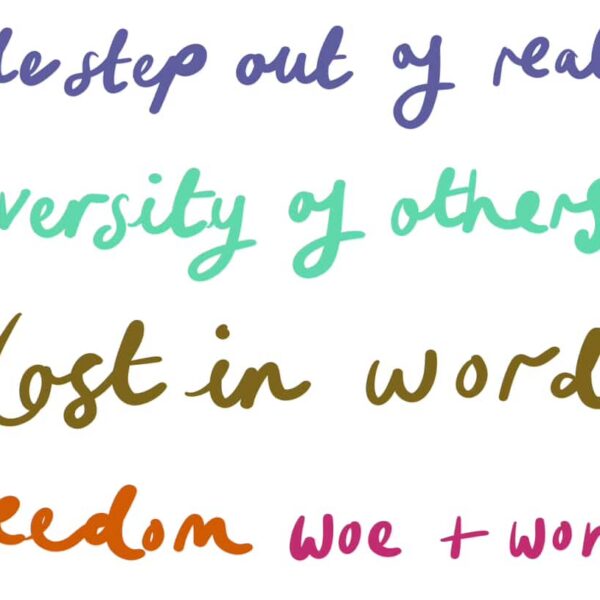 step out of
versity of others
lost in word
eedom woe + wor